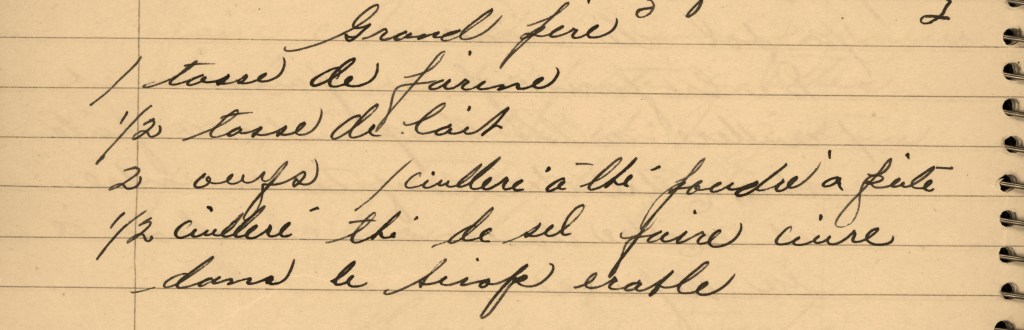 Grand père
1 tasse de farine
1/2 tasse de lait
2 oeufs 1 cuilleré à thé poudre à pâte
1/2 cuilleré thé de sel faire cuire
dans le sirop erable